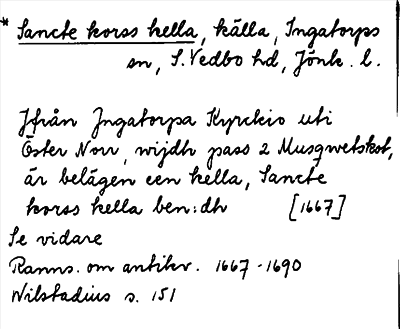 * Sancte korss kella, källa, Ingatorps
sn, S. Vedbo hd, Jönk. l.
Ifrån Ingatorpa Kyrckio uti
Öster Norr, wijdh pass 2 Musqwetskot,
är belägen een kella, Sancte
korss kella ben:dh [1667]
Se vidare
Ranns. om antikv. 1667-1690
Nilstadius s. 151